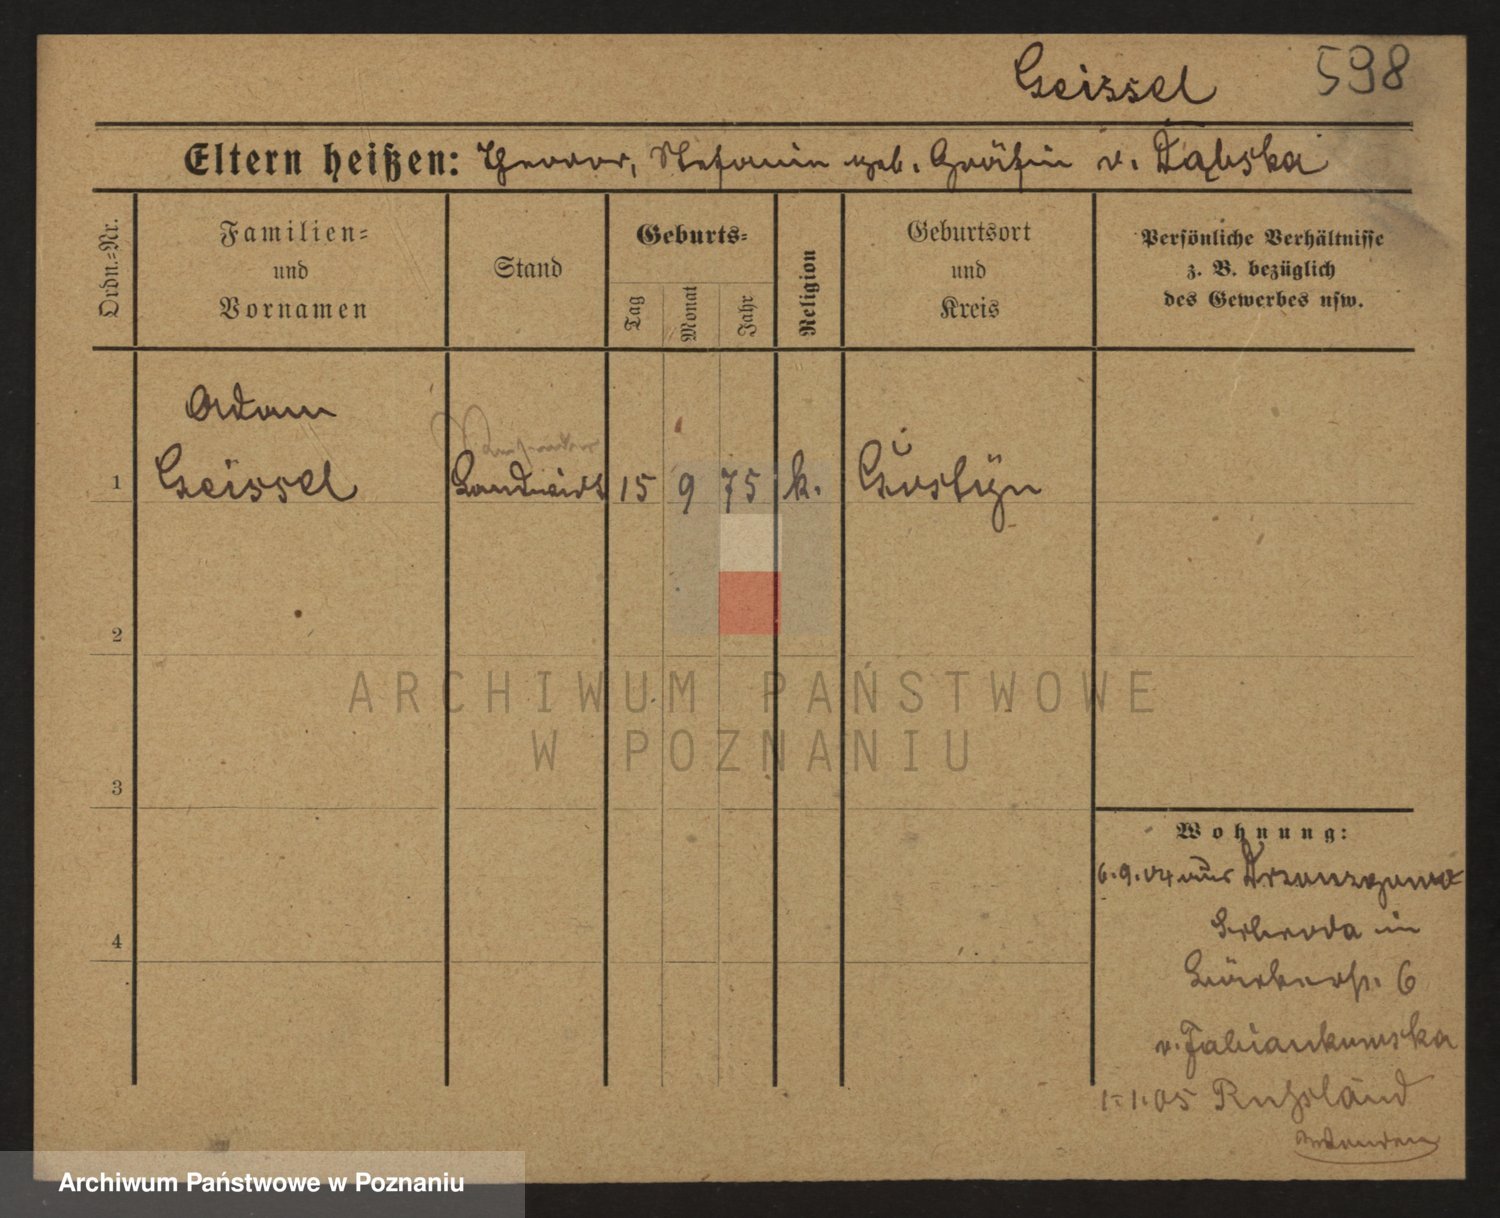 Geissel 598
Eltern heißen: Theodor, Stefanie geb. Gräfin v. Dąbska
Ordn.-Nr.
Familien-
und
Vornamen
Stand
Geburts-
Tag
Monat
Jahr
Religion
Geburtsort
und
Kreis
Persönliche Verhältnisse
z. B. bezüglich
des Gewerbes usw.
Adam
1 Geissel Landwirt 15 9 75 k. Gostyn
2
3
4
ARCHIWUM PAŃSTWOWE
W POZNANIU
Wohnung:
6.9.04 aus
Schroda in
6
v. Fabiankowska
1.1.05 Rußland
wenden
Archiwum Państwowe w Poznaniu